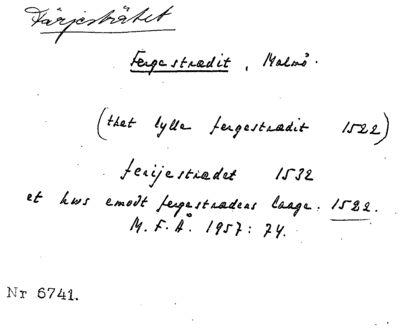 Färjesträtet
Fergestrædit, Malmö.
(thet lylle fergestrædit 1522)
ferijestrædet 1532
et hws emodt fergestrædens laage. 1522.
M. F. Å. 1957: 74.
Nr 6741.